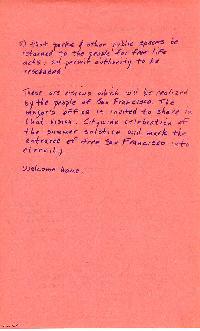 5) that parks & other public spaces be
returned to the people for free life
acts; all permit authority to be
rescinded

These are visions which will be realized
by the people of San Francisco. The
mayor's office is invited to share in
that vision. Citywide celebration of
the summer solstice will mark the
entrance of free San Francisco into
eternity

Welcome home.